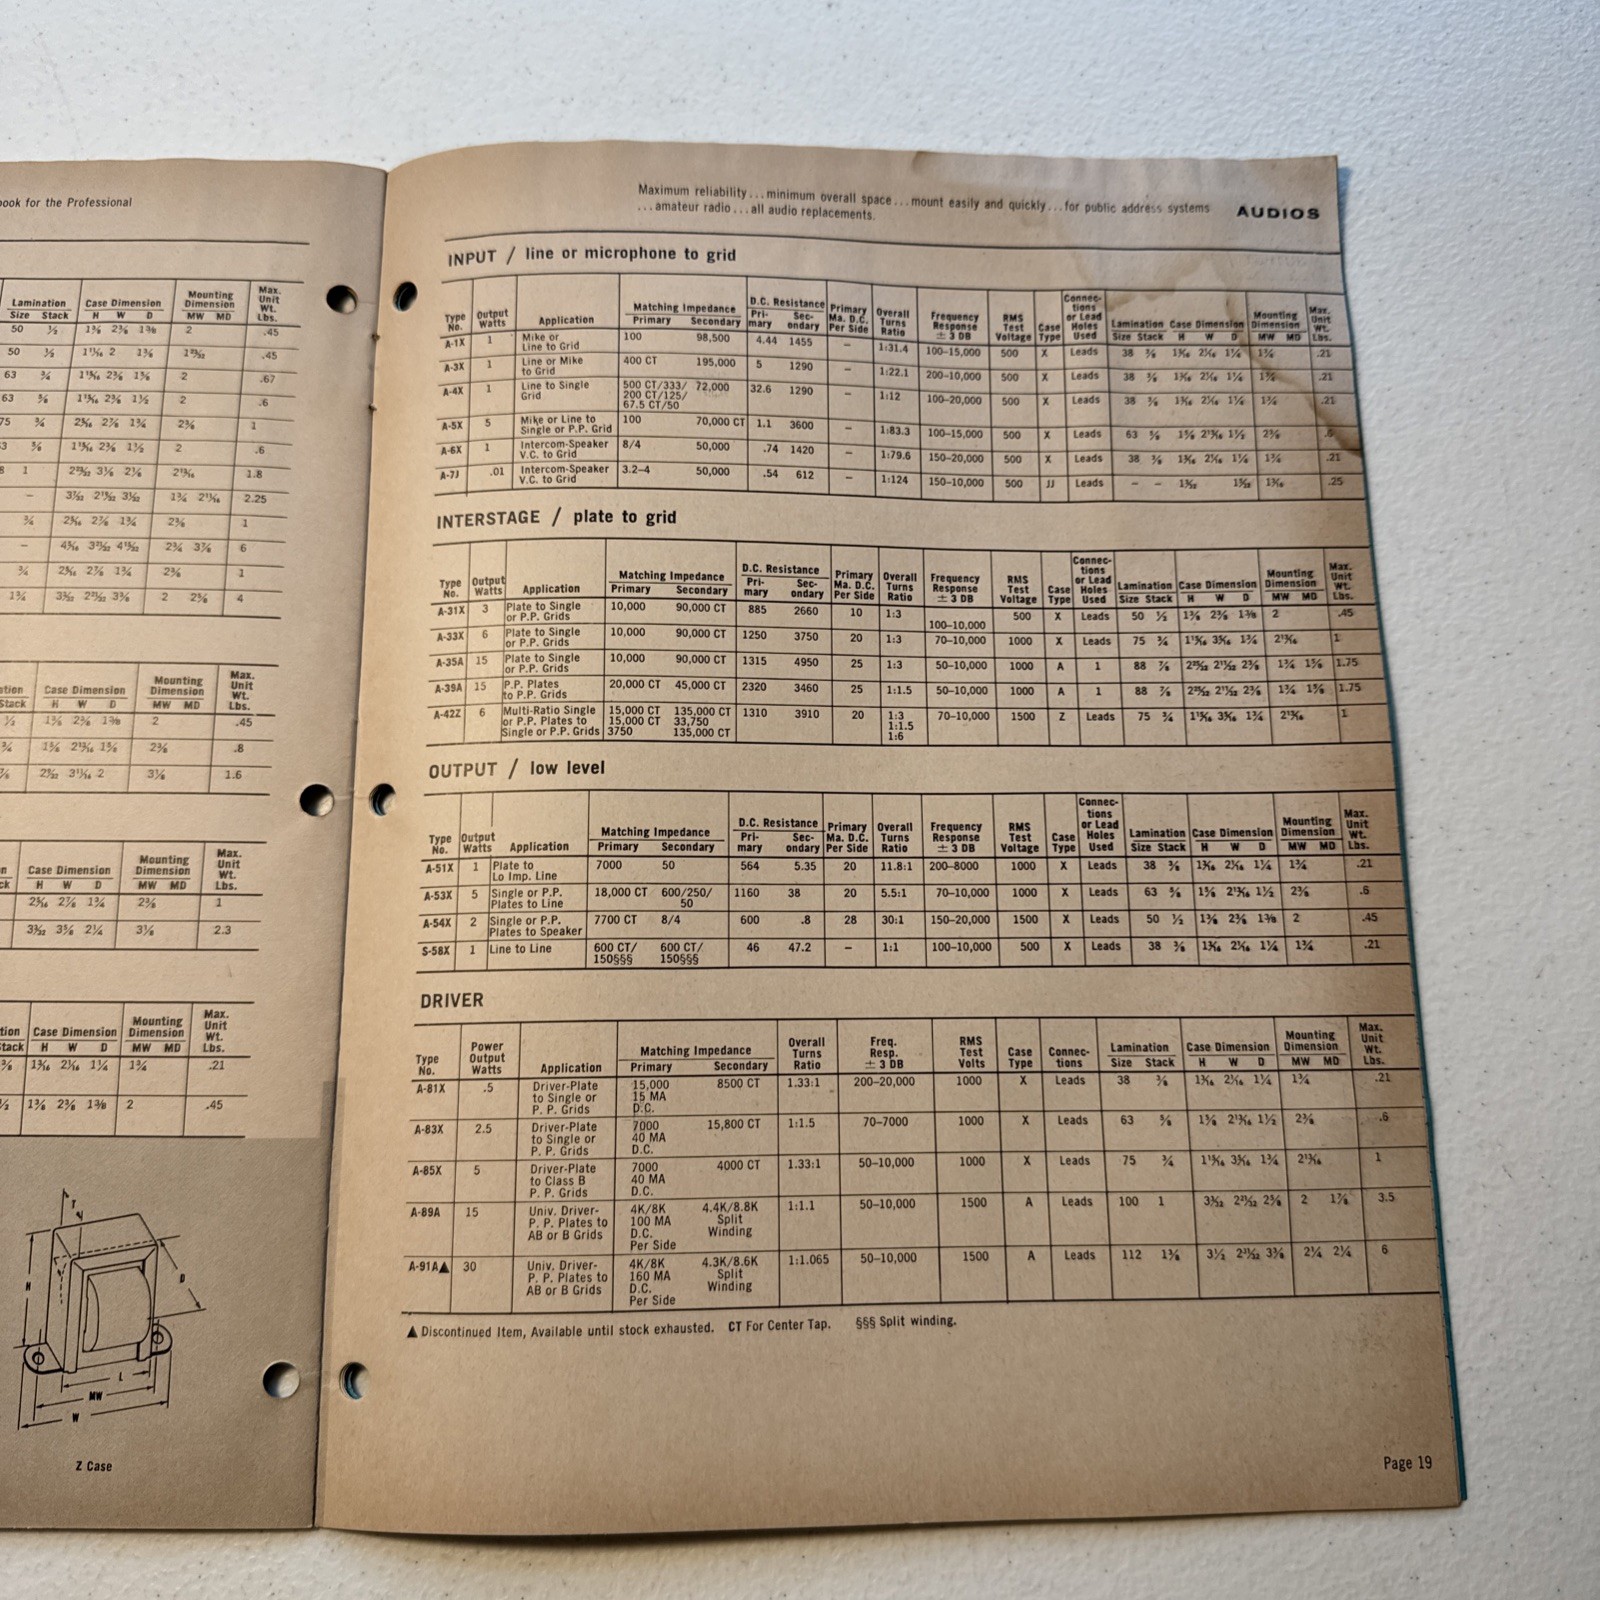 book for the Professional
Lamination Case Dimension Mounting Dimension Max. Unit Wt. Lbs.
Size Stack H W D MW MD
50 ½ 1⅝ 2⅜ 1⅜ 2 .45
50 ½ .45
63 ¾ 2 .67
63 2 .6
75 ¾ 2⅜ 1
.6
1 1.8
– 2.25
¾ 2⅜ 1
– 2¾ 3⅞ 6
¾ 2⅜ 1
1¾ 2 4
Case Dimension Mounting Dimension Max. Unit Wt. Lbs.
Stack H W D MW MD
½ 1⅝ 2⅜ 1⅜ 2 .45
¾ .8
1.6
Case Dimension Mounting Dimension Max. Unit Wt. Lbs.
H W D MW MD
2⅜ 1
3⅛ 2.3
Case Dimension Mounting Dimension Max. Unit Wt. Lbs.
Stack H W D MW MD
1¾ .21
½ 1⅝ 2⅜ 1⅜ 2 .45
T
H
D
L
MW
W
Z Case
Maximum reliability...minimum overall space...mount easily and quickly...for public address systems
...amateur radio...all audio replacements.
AUDIOS
INPUT / line or microphone to grid
Type No. Output Watts Application Matching Impedance Primary Secondary D.C. Resistance Primary Secondary Primary Ma. D.C. Per Side Overall Turns Ratio Frequency Response ± 3 DB RMS Test Voltage Case Type Connections or Lead Holes Used Lamination Size Stack Case Dimension H W D Mounting Dimension MW MD Max. Unit Wt. Lbs.
A-1X 1 Mike or Line to Grid 100 98,500 4.44 1455 – 1:31.4 100–15,000 500 X Leads 38 1¾ .21
A-3X 1 Line or Mike to Grid 400 CT 195,000 5 1290 – 1:22.1 200–10,000 500 X Leads 38 1¾ .21
A-4X 1 Line to Single Grid 500 CT/333/ 200 CT/125/ 67.5 CT/50 72,000 32.6 1290 – 1:12 100–20,000 500 X Leads 38 1¾ .21
A-5X 5 Mike or Line to Single or P.P. Grid 100 70,000 CT 1.1 3600 – 1:83.3 100–15,000 500 X Leads 63 2⅜ .6
A-6X 1 Intercom-Speaker V.C. to Grid 8/4 50,000 .74 1420 – 1:79.6 150–20,000 500 X Leads 38 1¾ .21
A-7J .01 Intercom-Speaker V.C. to Grid 3.2–4 50,000 .54 612 – 1:124 150–10,000 500 JJ Leads – – .25
INTERSTAGE / plate to grid
Type No. Output Watts Application Matching Impedance Primary Secondary D.C. Resistance Primary Secondary Primary Ma. D.C. Per Side Overall Turns Ratio Frequency Response ± 3 DB RMS Test Voltage Case Type Connections or Lead Holes Used Lamination Size Stack Case Dimension H W D Mounting Dimension MW MD Max. Unit Wt. Lbs.
A-31X 3 Plate to Single or P.P. Grids 10,000 90,000 CT 885 2660 10 1:3 100–10,000 500 X Leads 50 ½ 1⅝ 2⅜ 1⅜ 2 .45
A-33X 6 Plate to Single or P.P. Grids 10,000 90,000 CT 1250 3750 20 1:3 70–10,000 1000 X Leads 75 ¾ 1
A-35A 15 Plate to Single or P.P. Grids 10,000 90,000 CT 1315 4950 25 1:3 50–10,000 1000 A 1 88 ⅞ 1.75
A-39A 15 P.P. Plates to P.P. Grids 20,000 CT 45,000 CT 2320 3460 25 1:1.5 50–10,000 1000 A 1 88 ⅞ 1.75
A-42Z 6 Multi-Ratio Single or P.P. Plates to Single or P.P. Grids 15,000 CT 15,000 CT 3750 135,000 CT 33,750 135,000 CT 1310 3910 20 1:3 1:1.5 1:6 70–10,000 1500 Z Leads 75 ¾ 1
OUTPUT / low level
Type No. Output Watts Application Matching Impedance Primary Secondary D.C. Resistance Primary Secondary Primary Ma. D.C. Per Side Overall Turns Ratio Frequency Response ± 3 DB RMS Test Voltage Case Type Connections or Lead Holes Used Lamination Size Stack Case Dimension H W D Mounting Dimension MW MD Max. Unit Wt. Lbs.
A-51X 1 Plate to Lo Imp. Line 7000 50 564 5.35 20 11.8:1 200–8000 1000 X Leads 38 1¾ .21
A-53X 5 Single or P.P. Plates to Line 18,000 CT 600/250/ 50 1160 38 20 5.5:1 70–10,000 1000 X Leads 63 2⅜ .6
A-54X 2 Single or P.P. Plates to Speaker 7700 CT 8/4 600 .8 28 30:1 150–20,000 1500 X Leads 50 ½ 1⅝ 2⅜ 1⅜ 2 .45
S-58X 1 Line to Line 600 CT/ 150§§§ 600 CT/ 150§§§ 46 47.2 – 1:1 100–10,000 500 X Leads 38 1¾ .21
DRIVER
Type No. Power Output Watts Application Matching Impedance Primary Secondary Overall Turns Ratio Freq. Resp. ± 3 DB RMS Test Volts Case Type Connections Lamination Size Stack Case Dimension H W D Mounting Dimension MW MD Max. Unit Wt. Lbs.
A-81X .5 Driver-Plate to Single or P. P. Grids 15,000 15 MA D.C. 8500 CT 1.33:1 200–20,000 1000 X Leads 38 1¾ .21
A-83X 2.5 Driver-Plate to Single or P. P. Grids 7000 40 MA D.C. 15,800 CT 1:1.5 70–7000 1000 X Leads 63 2⅜ .6
A-85X 5 Driver-Plate to Class B P. P. Grids 7000 40 MA D.C. 4000 CT 1.33:1 50–10,000 1000 X Leads 75 ¾ 1
A-89A 15 Univ. Driver- P. P. Plates to AB or B Grids 4K/8K 100 MA D.C. Per Side 4.4K/8.8K Split Winding 1:1.1 50–10,000 1500 A Leads 100 1 2 3.5
A-91A▲ 30 Univ. Driver- P. P. Plates to AB or B Grids 4K/8K 160 MA D.C. Per Side 4.3K/8.6K Split Winding 1:1.065 50–10,000 1500 A Leads 112 1⅜ 2¼ 2¼ 6
▲ Discontinued Item, Available until stock exhausted. CT For Center Tap. §§§ Split winding.
Page 19